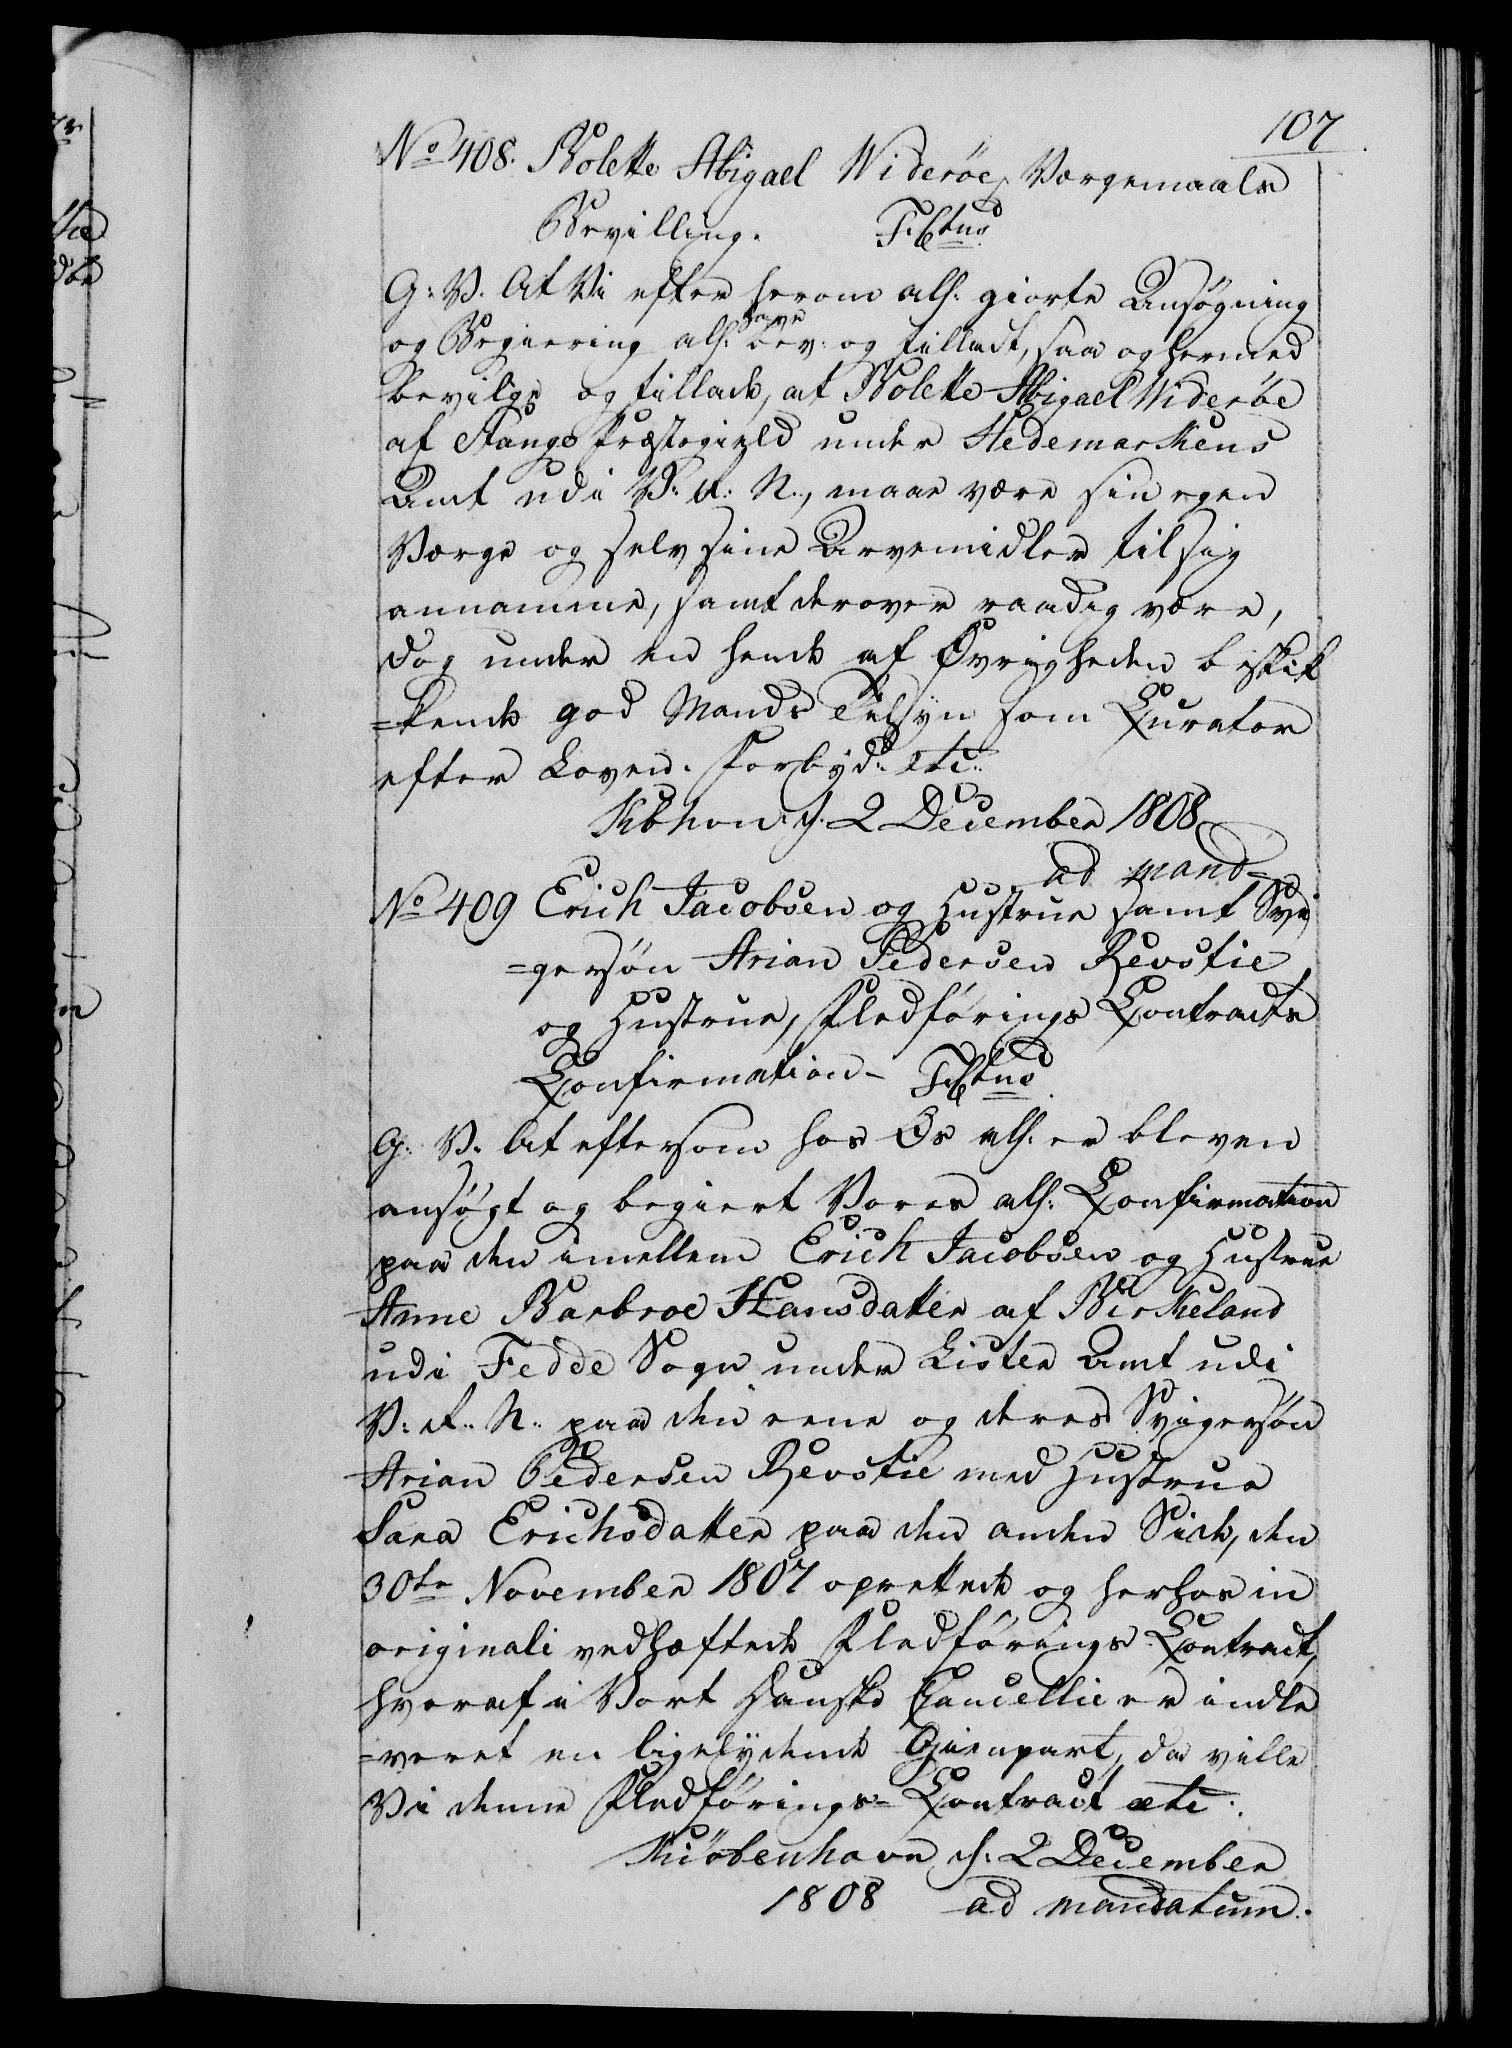 107
No 408. Bolette Abigael Widerøe, Værgemaals
Bevilling. F: 6tus
G: V. At Vi efter herom alh: giorte Ansøgning
og Begiering alh: have bev: og tilladt, saa og hermed
bevilge og tillade, at Bolette Abigael Widerøe
af Stange Præstegield under Hedemarkens
Amt udi V: R: N., maae være sin egen
Værge og selv sine Arvemidler til sig
annamme, samt derover raadig være,
dog under en hende af Øvrigheden beskik
=kende god Mands Tilsyn som Curator
efter Loven. Forbyd: etc:
Kbhvn: d. 2 December 1808
ad mand
No 409 Erich Jacobsen og Hustrue samt Svi
=gersøn Arian Pedersen Revstie
og Hustrue, Fledførings Contracts
Confirmation - F: 6tus
G: V. At eftersom hos Os alh: er bleven
ansøgt og begiert Vores alh: Confirmation
paa den imellem Erich Jacobsen og Hustrue
Anne Barbroe Hansdatter af Birkeland
udi Fedde Sogn under Lister Amt udi
V: R: N: paa den eene og deres Svigersøn
Arian Pedersen Revstie med Hustrue
Sara Erichsdatter paa den anden Side, den
30te November 1807 oprettede og herhos in
originali vedhæftede Fledførings-Contract,
hvoraf i Vort danske Cancellie er indle
=veret en ligelydende Gienpart, da ville
Vi denne Fledførings= Contract etc:
Kiøbenhavn d: 2 December
1808 ad mandatum.